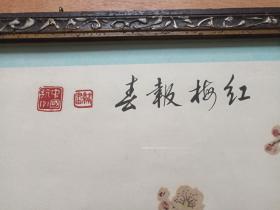 红梅報春